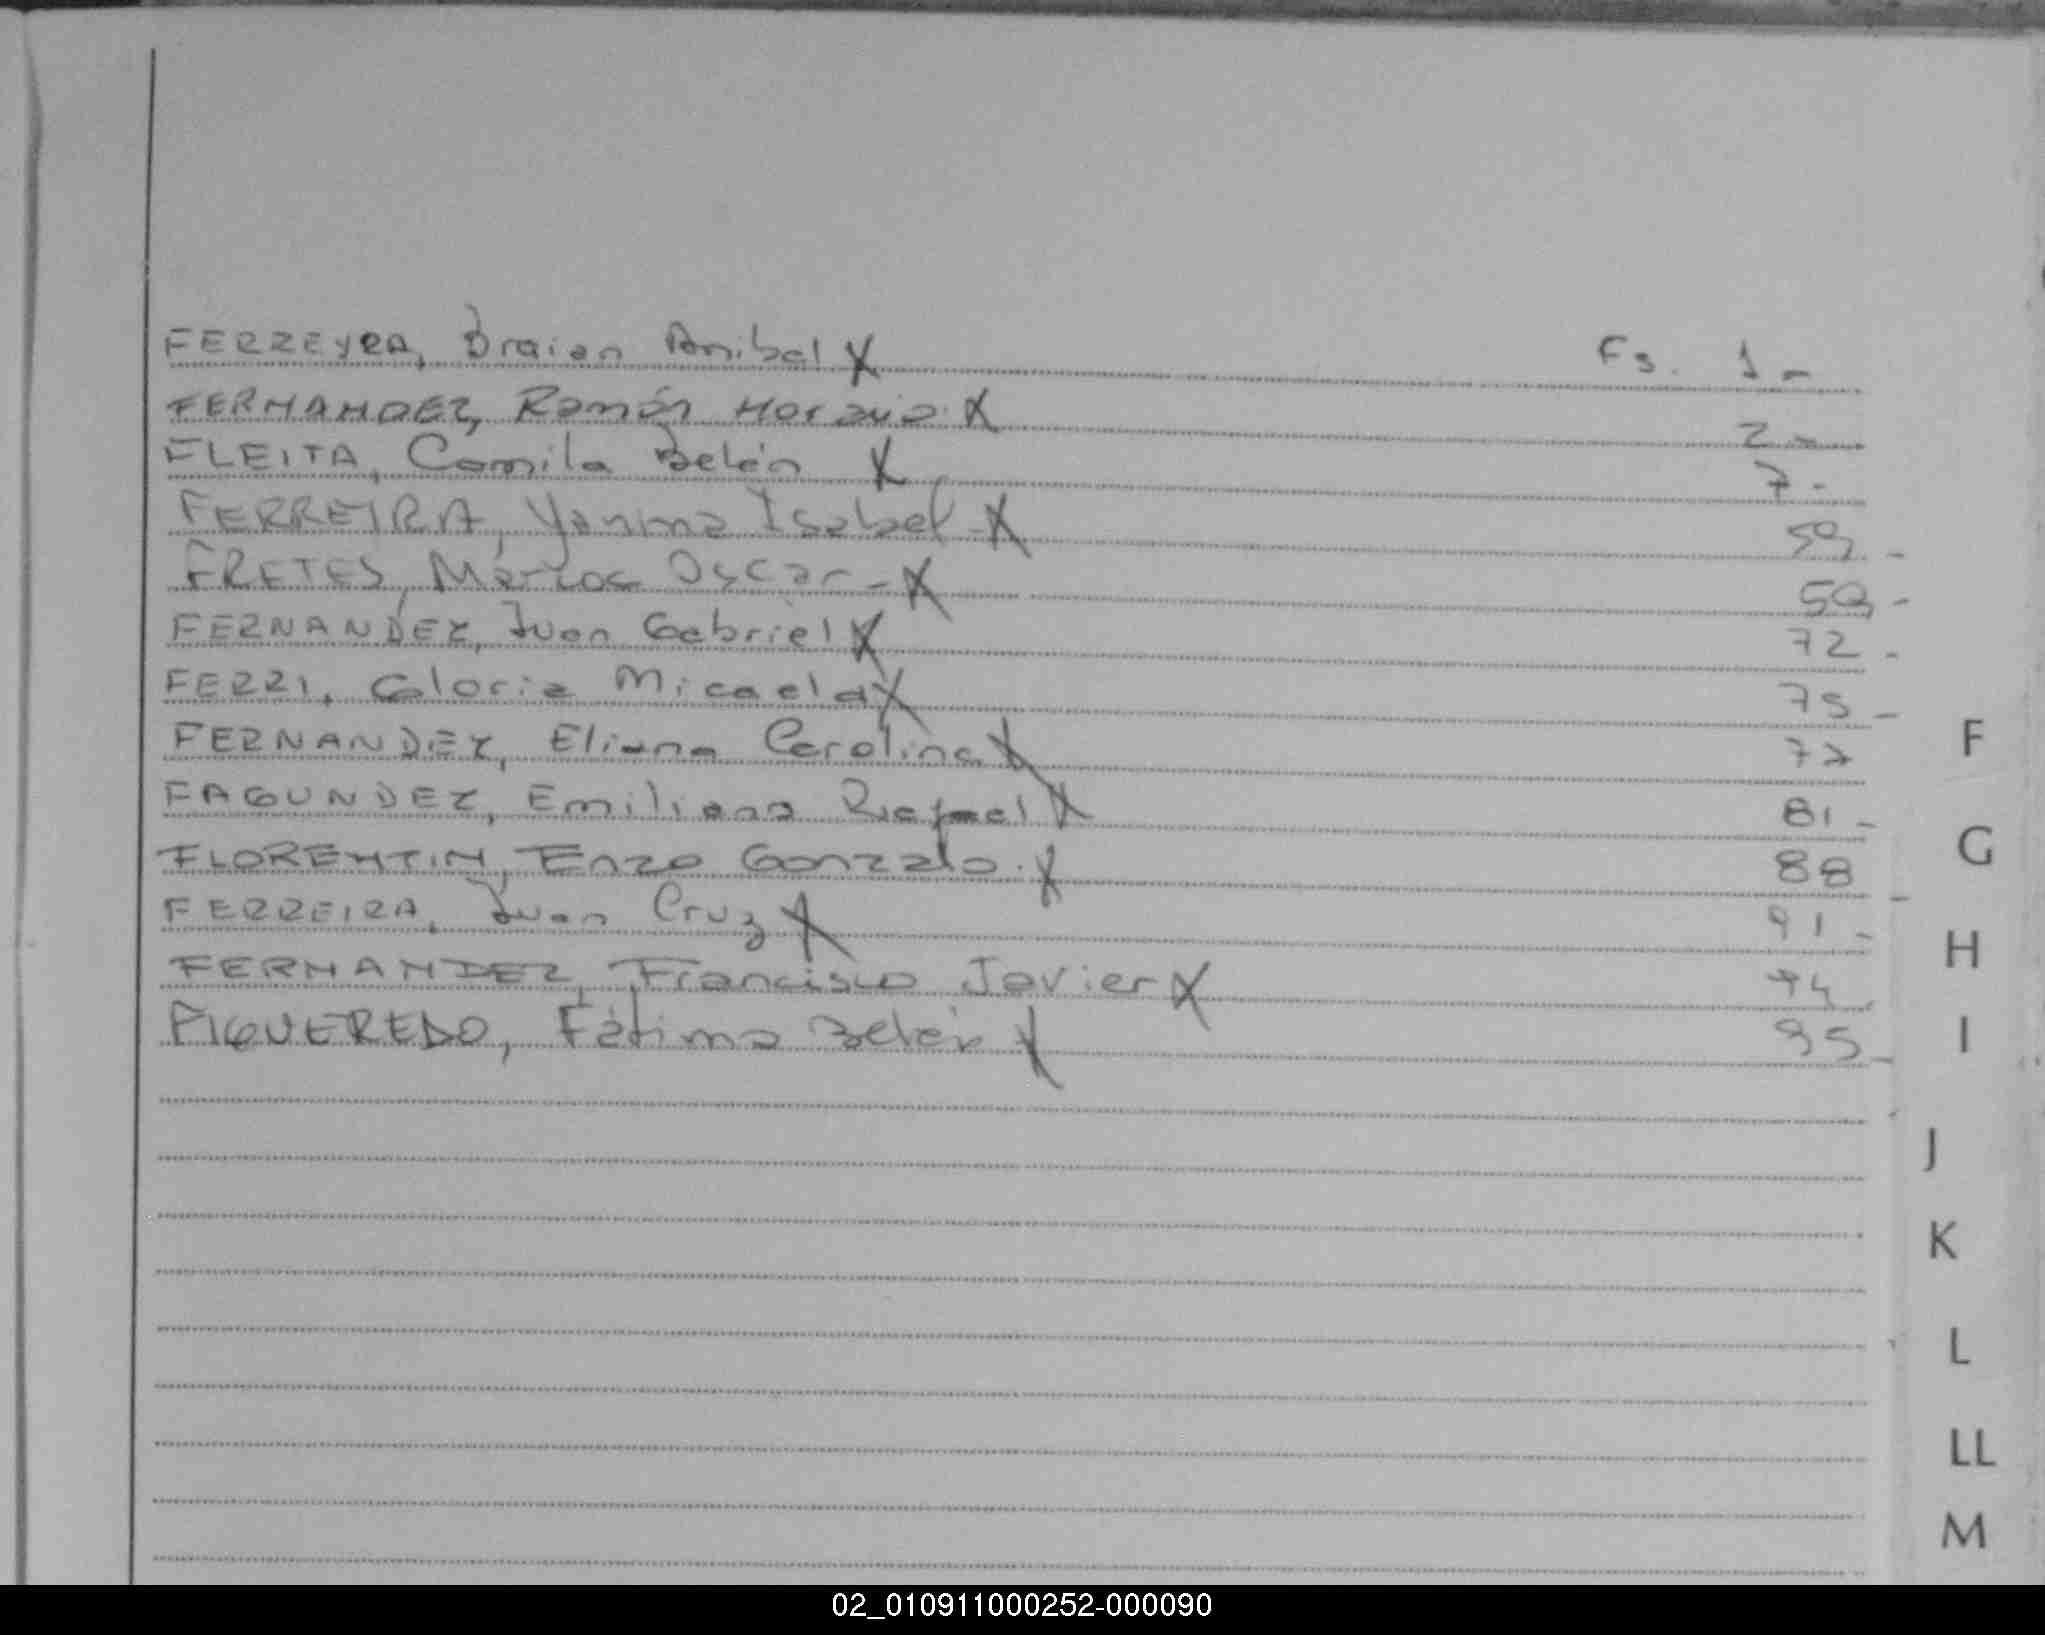 FERREYRA, Braian Anibal X Fs. 1 -
FERNANDEZ, Ramón Horacio. X 2 -
FLEITA, Camila Belén X 7 -
FERREIRA, Yanina Isabel - X 59 -
FRETES, Marcos Oscar - X 59 -
FERNANDEZ, Juan Gabriel X 72 -
FERRI, Gloria Micaela X 75 -
FERNANDEZ, Eliana Carolina X 77
FAGUNDEZ, Emiliano Rafael X 81 -
FLORENTIN, Enzo Gonzalo. X 88 -
FERREIRA, Juan Cruz X 91 -
FERNANDEZ, Francisco Javier X 94
FIGUEREDO, Fátima Belén X 95 -
F
G
H
I
J
K
L
LL
M
02_010911000252-000090